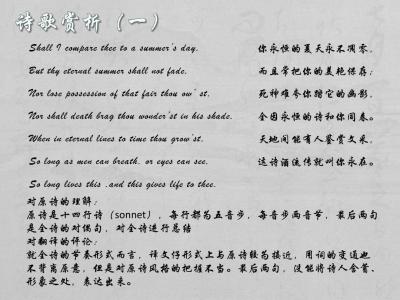 诗歌赏析（一）
Shall I compare thee to a summer's day. 你永恒的夏天永不凋零，
But thy eternal summer shall not fade, 而且常把你的美艳保存；
Nor lose possession of that fair thou ow' st, 死神难夸你踏它的幽影，
Nor shall death brag thou wonder'st in his shade, 全因永恒的诗和你同春。
When in eternal lines to time thou grow'st, 天地间能有人鉴赏文采，
So long as men can breath, or eyes can see, 这诗酒流传就叫你永在。
So long lives this ,and this gives life to thee.
对原诗的理解：
原诗是十四行诗（sonnet），每行都为五音步，每音步两音节，最后两句
是全诗的对偶句，对全诗进行总结
对翻译的评论：
就全诗的节奏形式而言，译文仔形式上与原诗较为接近，用词的变通也
不背离原意，但是对原诗风格的把握不当。最后两句，没能将诗人含蓄、
形象之处，表达出来。